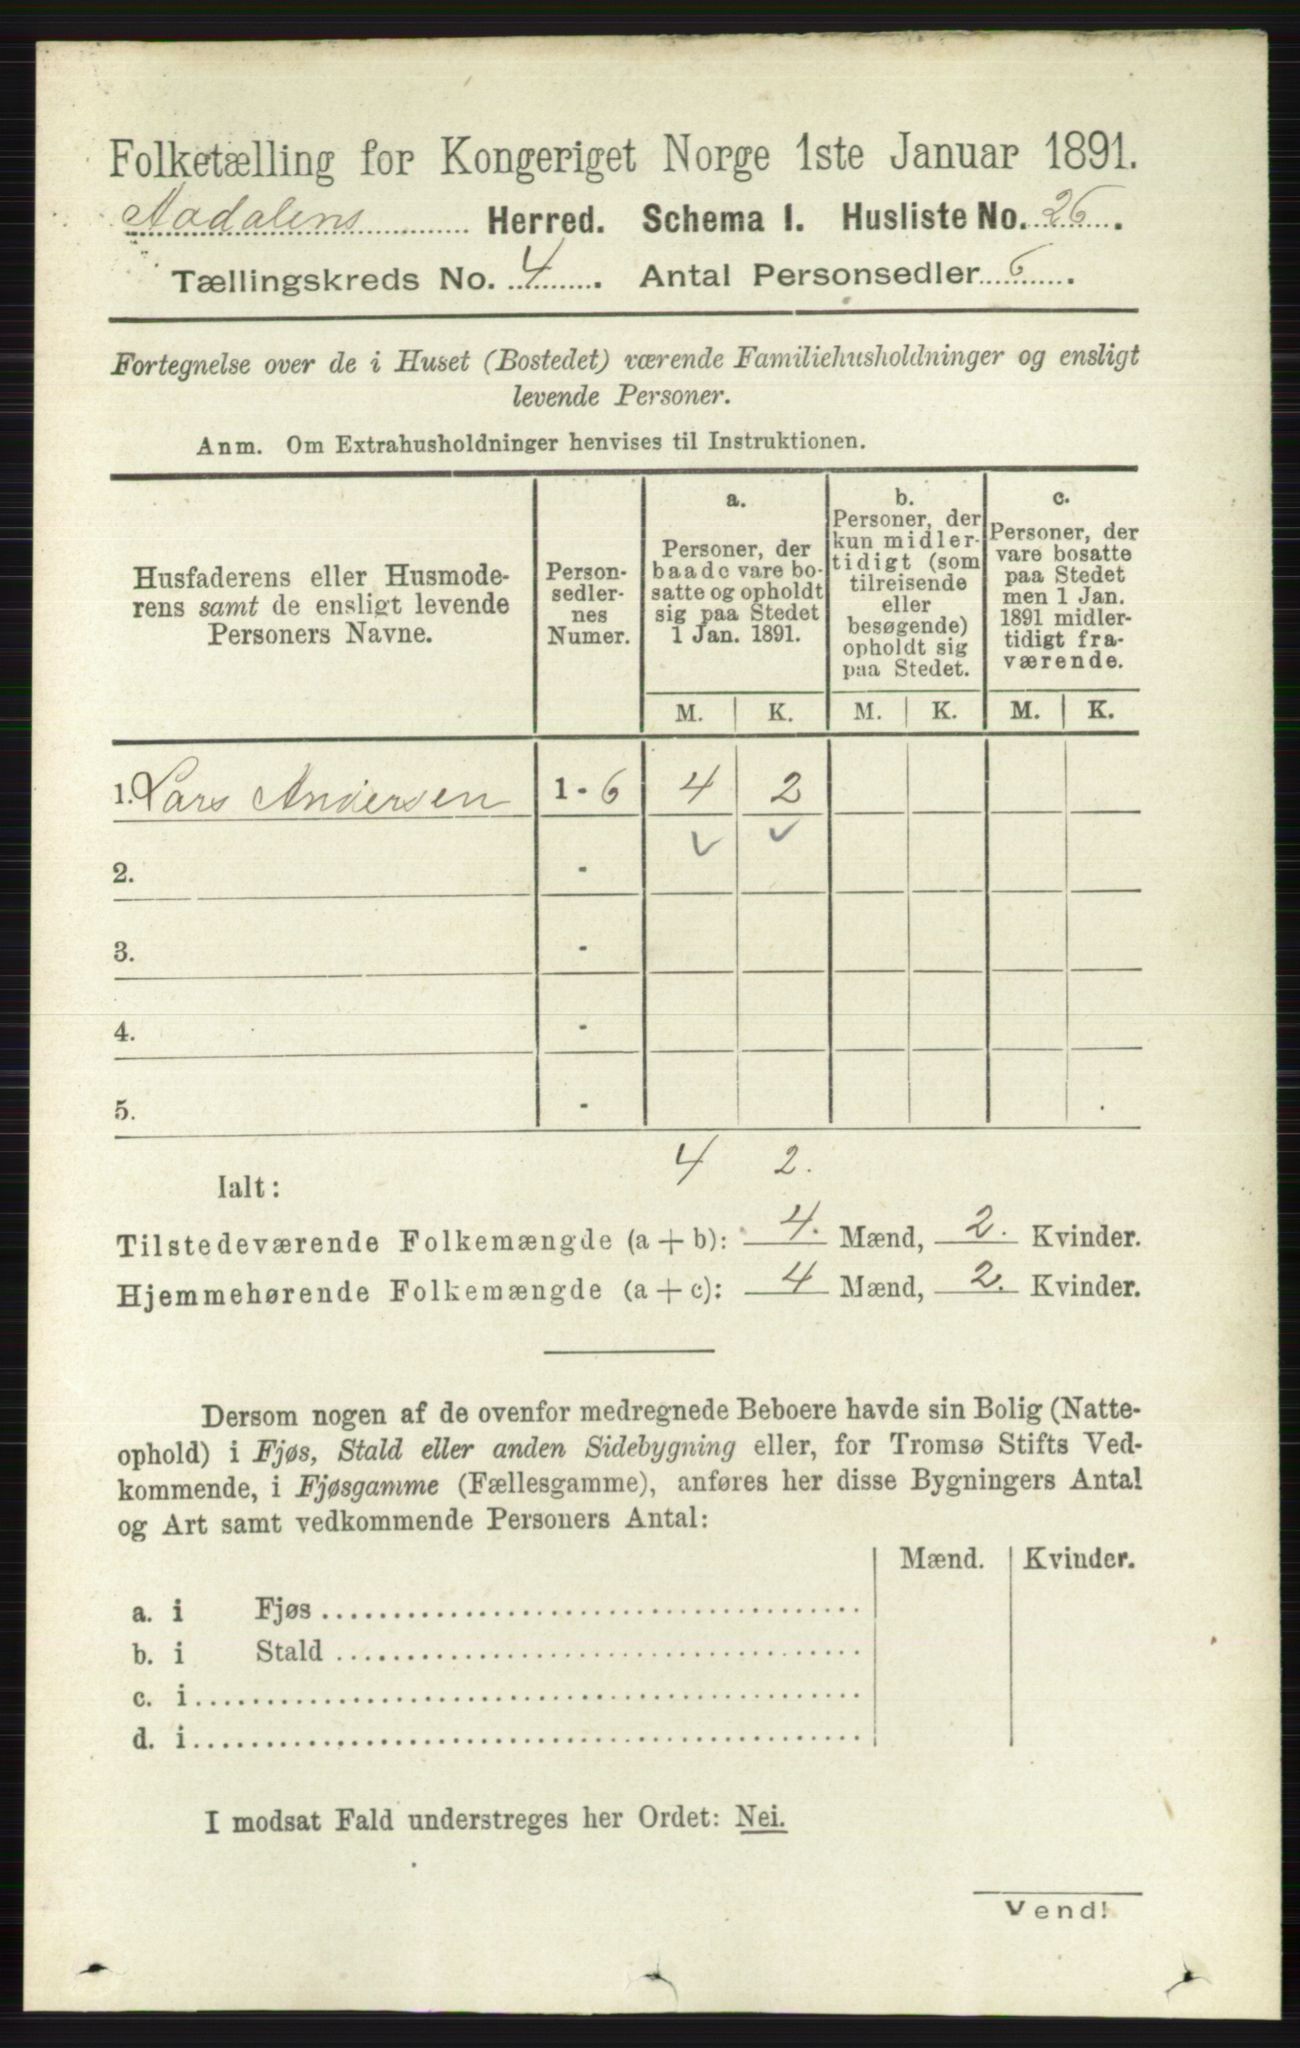 Folketælling for Kongeriget Norge 1ste Januar 1891.
Aadalens Herred. Schema 1. Husliste No. 26.
Tællingskreds No. 4. Antal Personsedler 6.
Fortegnelse over de i Huset (Bostedet) værende Familiehusholdninger og ensligt
levende Personer.
Anm. Om Extrahusholdninger henvises til Instruktionen.
Husfaderens eller Husmode-
rens samt de ensligt levende
Personers Navne.
Person-
sedler-
nes
Numer.
a.
Personer, der
baade vare bo-
satte og opholdt
sig paa Stedet
1 Jan. 1891.
b.
Personer, der
kun midler-
tidigt (som
tilreisende
eller
besøgende)
opholdt sig
paa Stedet.
c.
Personer, der
vare bosatte
paa Stedet
men 1 Jan.
1891 midler-
tidigt fra-
værende.
M. K. M. K. M. K.
1. Lars Andersen 1 - 6 4 2
2. -
3. -
4. -
5. -
4 2.
Ialt:
Tilstedeværende Folkemængde (a + b): 4. Mænd, 2. Kvinder.
Hjemmehørende Folkemængde (a + c): 4 Mænd, 2. Kvinder.
Dersom nogen af de ovenfor medregnede Beboere havde sin Bolig (Natte-
ophold) i Fjøs, Stald eller anden Sidebygning eller, for Tromsø Stifts Ved-
kommende, i Fjøsgamme (Fællesgamme), anføres her disse Bygningers Antal
og Art samt vedkommende Personers Antal:
Mænd. Kvinder.
a. i Fjøs
b. i Stald
c. i
d. i
I modsat Fald understreges her Ordet: Nei.
Vend!